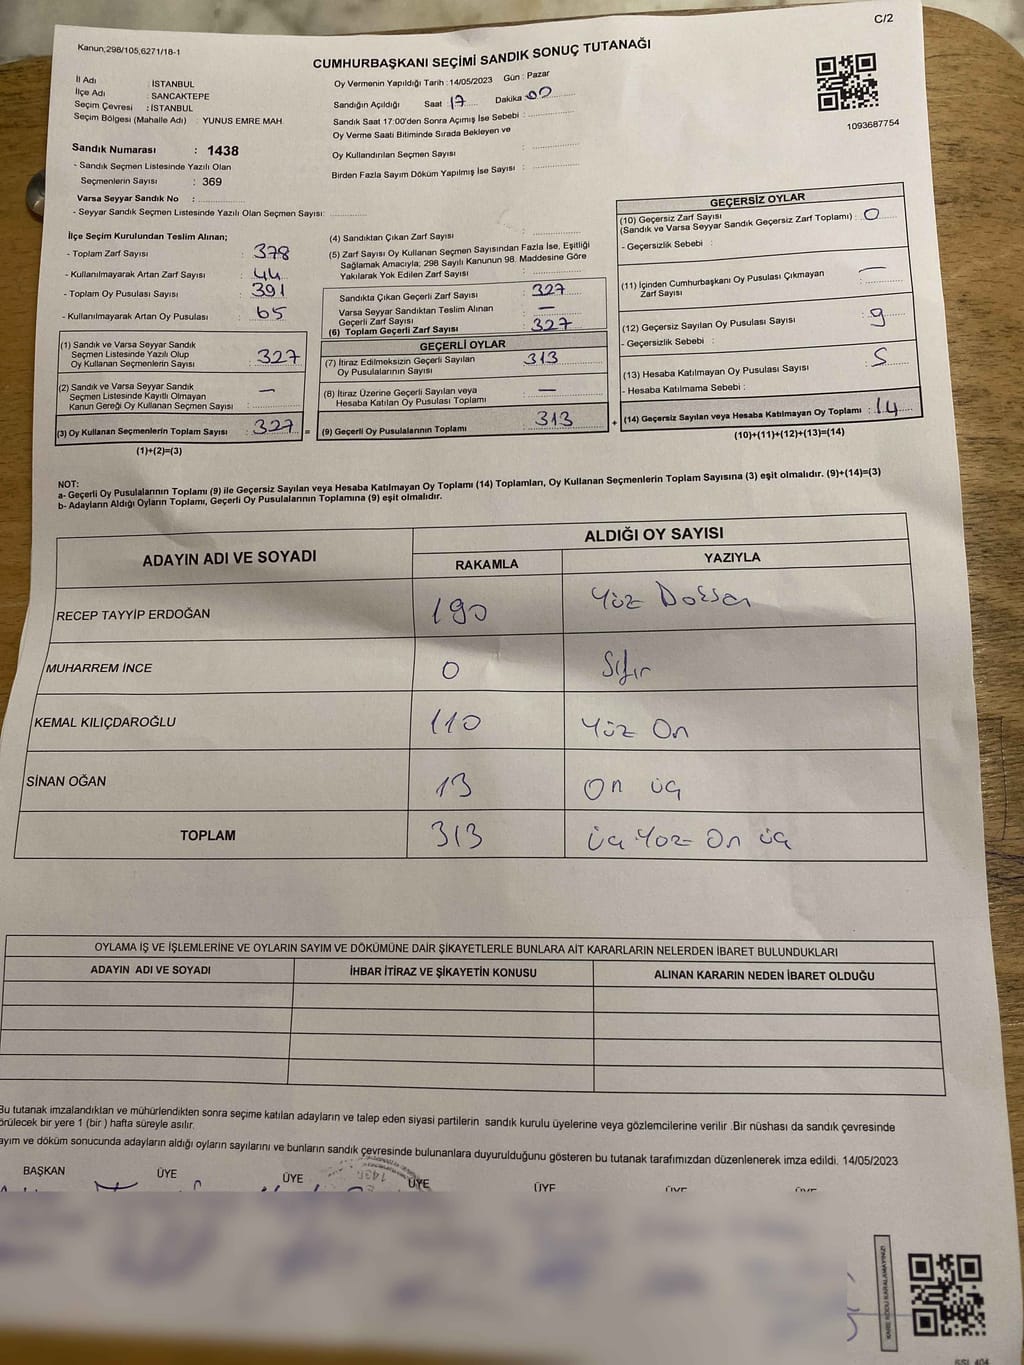 C/2
Kanun;298/105,6271/18-1
CUMHURBAŞKANI SEÇİMİ SANDIK SONUÇ TUTANAĞI
İl Adı : İSTANBUL
İlçe Adı : SANCAKTEPE
Seçim Çevresi : İSTANBUL
Seçim Bölgesi (Mahalle Adı) : YUNUS EMRE MAH.
Sandık Numarası : 1438
- Sandık Seçmen Listesinde Yazılı Olan
Seçmenlerin Sayısı : 369
Varsa Seyyar Sandık No :
- Seyyar Sandık Seçmen Listesinde Yazılı Olan Seçmen Sayısı:
Oy Vermenin Yapıldığı Tarih : 14/05/2023 Gün : Pazar
Sandığın Açıldığı Saat 17 Dakika 00
Sandık Saat 17:00'den Sonra Açımış İse Sebebi :
Oy Verme Saati Bitiminde Sırada Bekleyen ve
Oy Kullandırılan Seçmen Sayısı :
Birden Fazla Sayım Döküm Yapılmış İse Sayısı :
1093687754
İlçe Seçim Kurulundan Teslim Alınan;
- Toplam Zarf Sayısı : 378
- Kullanılmayarak Artan Zarf Sayısı : 44
- Toplam Oy Pusulası Sayısı : 391
- Kullanılmayarak Artan Oy Pusulası : 65
(1) Sandık ve Varsa Seyyar Sandık
Seçmen Listesinde Yazılı Olup
Oy Kullanan Seçmenlerin Sayısı : 327
(2) Sandık ve Varsa Seyyar Sandık
Seçmen Listesinde Kayıtlı Olmayan
Kanun Gereği Oy Kullanan Seçmen Sayısı : —
(3) Oy Kullanan Seçmenlerin Toplam Sayısı : 327 =
(1)+(2)=(3)
(4) Sandıktan Çıkan Zarf Sayısı :
(5) Zarf Sayısı Oy Kullanan Seçmen Sayısından Fazla İse, Eşitliği
Sağlamak Amacıyla; 298 Sayılı Kanunun 98. Maddesine Göre
Yakılarak Yok Edilen Zarf Sayısı :
Sandıkta Çıkan Geçerli Zarf Sayısı : 327
Varsa Seyyar Sandıktan Teslim Alınan
Geçerli Zarf Sayısı : —
(6) Toplam Geçerli Zarf Sayısı : 327
GEÇERLİ OYLAR
(7) İtiraz Edilmeksizin Geçerli Sayılan
Oy Pusulalarının Sayısı : 313
(8) İtiraz Üzerine Geçerli Sayılan veya
Hesaba Katılan Oy Pusulası Toplamı : —
(9) Geçerli Oy Pusulalarının Toplamı : 313 +
GEÇERSİZ OYLAR
(10) Geçersiz Zarf Sayısı
(Sandık ve Varsa Seyyar Sandık Geçersiz Zarf Toplamı) : 0
- Geçersizlik Sebebi :
(11) İçinden Cumhurbaşkanı Oy Pusulası Çıkmayan
Zarf Sayısı : —
(12) Geçersiz Sayılan Oy Pusulası Sayısı : 9
- Geçersizlik Sebebi :
(13) Hesaba Katılmayan Oy Pusulası Sayısı : 5
- Hesaba Katılmama Sebebi :
(14) Geçersiz Sayılan veya Hesaba Katılmayan Oy Toplamı : 14
(10)+(11)+(12)+(13)=(14)
NOT:
a- Geçerli Oy Pusulalarının Toplamı (9) ile Geçersiz Sayılan veya Hesaba Katılmayan Oy Toplamı (14) Toplamları, Oy Kullanan Seçmenlerin Toplam Sayısına (3) eşit olmalıdır. (9)+(14)=(3)
b- Adayların Aldığı Oyların Toplamı, Geçerli Oy Pusulalarının Toplamına (9) eşit olmalıdır.
ADAYIN ADI VE SOYADI
ALDIĞI OY SAYISI
RAKAMLA YAZIYLA
RECEP TAYYİP ERDOĞAN 190 Yüz Doksan
MUHARREM İNCE 0 Sıfır
KEMAL KILIÇDAROĞLU 110 Yüz On
SİNAN OĞAN 13 On üç
TOPLAM 313 üç Yüz On üç
OYLAMA İŞ VE İŞLEMLERİNE VE OYLARIN SAYIM VE DÖKÜMÜNE DAİR ŞİKAYETLERLE BUNLARA AİT KARARLARIN NELERDEN İBARET BULUNDUKLARI
ADAYIN ADI VE SOYADI İHBAR İTİRAZ VE ŞİKAYETİN KONUSU ALINAN KARARIN NEDEN İBARET OLDUĞU
Bu tutanak imzalandıktan ve mühürlendikten sonra seçime katılan adayların ve talep eden siyasi partilerin sandık kurulu üyelerine veya gözlemcilerine verilir .Bir nüshası da sandık çevresinde
örülecek bir yere 1 (bir ) hafta süreyle asılır.
ayım ve döküm sonucunda adayların aldığı oyların sayılarını ve bunların sandık çevresinde bulunanlara duyurulduğunu gösteren bu tutanak tarafımızdan düzenlenerek imza edildi. 14/05/2023
BAŞKAN ÜYE ÜYE ÜYE ÜYE ÜYE ÜYE
1438
KARE KODU KARALAMAYINIZ!